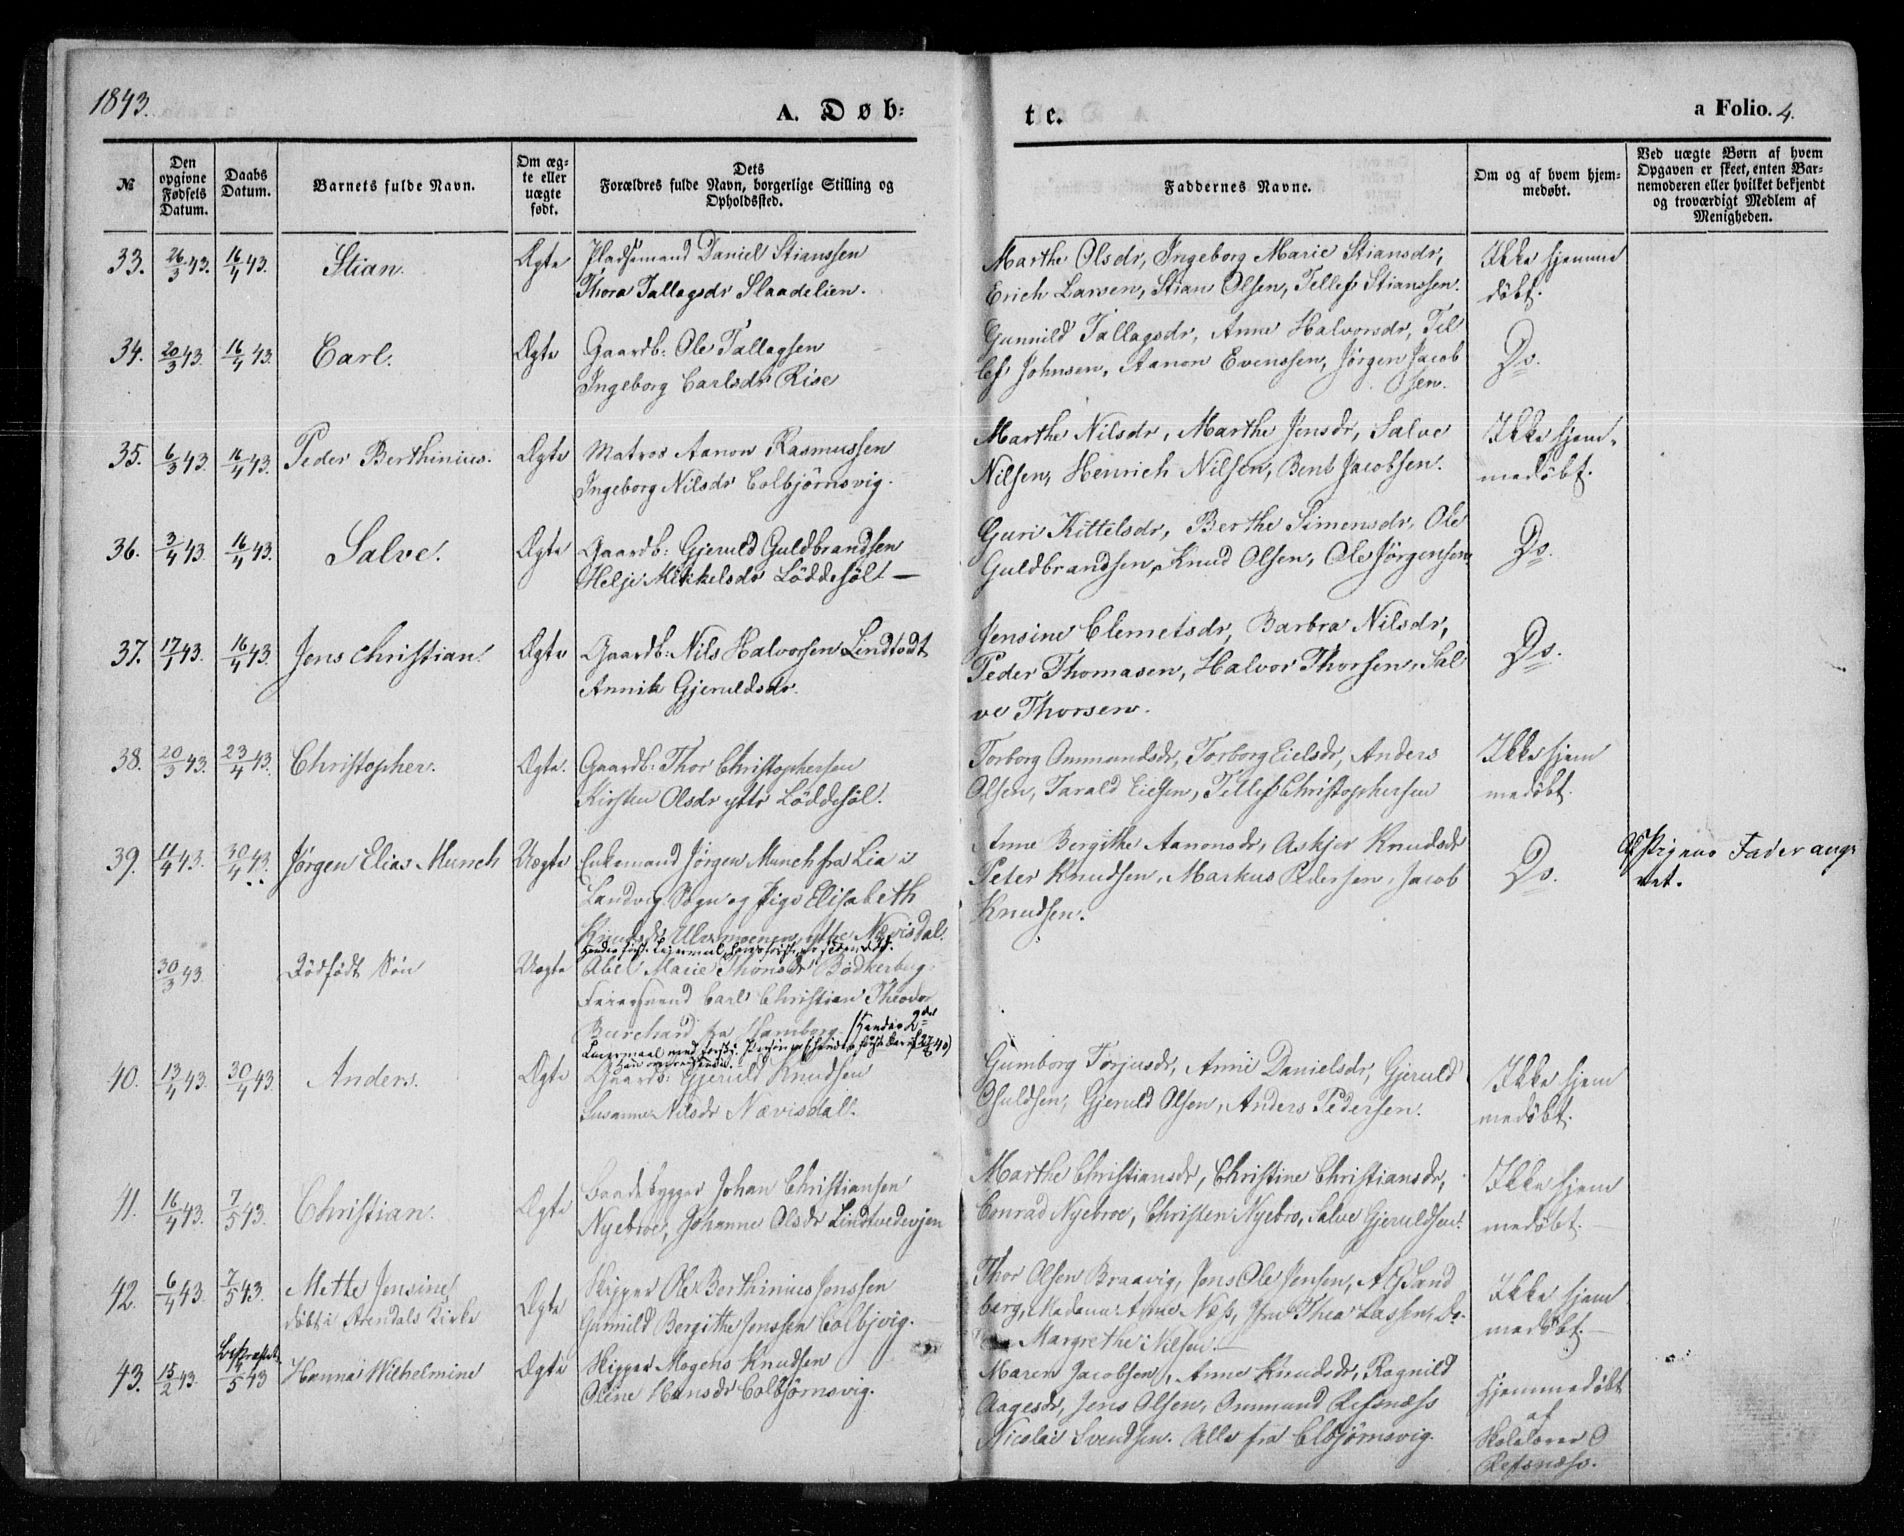 1843.
A. Døb=
te.
a Folio. 4.
№
Den opgivne Fødsels Datum.
Daabs Datum.
Barnets fulde Navn.
Om ægte eller uægte født.
Dets Forældres fulde Navn, borgerlige Stilling og Opholdssted.
Faddernes Navne.
Om og af hvem hjemmedøbt.
Ved uægte Børn af hvem Opgaven er skeet, enten Barnemoderen eller hvilket bekjendt og troværdigt Medlem af Menigheden.
33. 26/3 43. 16/4 43. Stian. Ægte Pladsemand Daniel Stianssen
Thora Tallagsdr Slaadelien.
Marthe Olsdr, Ingeborg Marie Stiansdr,
Erich Larsen, Stian Olsen, Tellef Stianssen.
Ikke hjemme
døbt.
34. 20/3 43. 16/4 43. Carl. Ægte Gaardb: Ole Tallagsen
Ingeborg Carlsdr Rise
Gunnild Tallagsdr, Anne Halvorsdr, Til
lef Johnsen, Aanon Evenssen, Jørgen Jacob
sen.
Do.
35. 6/3 43. 16/4 43. Peder Berthinius. Ægte Matros Aanon Rasmussen
Ingeborg Nilsdr Colbjørnsvig.
Marthe Nilsdr, Marthe Jensdr, Salve
Nilsen, Henrich Nilsen, Bent Jacobsen.
Ikke hjem-
medøbt.
36. 3/4 43. 16/4 43. Salve. Ægte Gaardb: Gjeruld Guldbrandsen
Helje Mikkelsdr Løddesøl. —
Guri Kittelsdr, Berthe Simensdr, Ole
Guldbrandsen, Knud Olsen, Ole Jørgensen
Do.
37. 17/1 43. 16/4 43. Jens Christian. Ægte Gaardb: Nils Halvorsen Lindtvdt
Annik Gjeruldsdr.
Jensine Clemetsdr, Barbra Nilsdr,
Peder Thomasen, Halvor Thorsen, Sal
ve Thorsen.
Do.
38. 20/3 43. 23/4 43. Christopher. Ægte. Gaardb: Thor Christophersen
Kirsten Olsdr yttr Løddesøl.
Torborg Ommundsdr, Torborg Eielsdr, Anders
Olsen, Tarald Eielsen, Tellef Christophersen
Ikke hjem
medøbt.
39. 11/4 43. 30/4 43. Jørgen Elias Munch Uægte Enkemand Jørgen Munch fra Lia i
Landvig Sogn og Pige Elisabeth
Knudsdr Ulvemoenen ytre Nævisdal.
Anne Bergithe Aanonsdr, Askjer Knudsdr
Peter Knudsen, Markus Pedersen, Jacob
Knudsen.
Do.
Af Pigens Fader angi
vet.
30/3 43. Dødfødt Søn Uægte Abel Marie Thorsdr Bødkerbug
Carl Christian Theodor
Burchard fra Hamborg.
40. 13/4 43. 30/4 43. Anders. Ægte Gaardb: Gjeruld Knudsen
Susanne Nilsdr Nævisdal.
Gumborg Torjusdr, Anne Danielsdr, Gjeruld
Osuldsen, Gjeruld Olsen, Anders Pedersen.
Ikke hjem
medøbt.
41. 16/4 43. 7/5 43. Christian. Ægte Baadebygger Johan Christiansen
Nyebroe, Johanne Olsdr Lindtvedevjen
Marthe Christiansdr, Christine Christiansdr,
Conrad Nyebroe, Christen Nyebro, Salve Gjeruldsen.
Ikke hjem
medøbt.
42. 6/4 43. 7/5 43. Mette Jensine,
døbt i Arendals Kirke
Ægte Skipper Ole Berthinius Jenssen
Gunnild Bergithe Jenssen Colbjvig.
Thor Olsen Braavig, Jens Ole Jensen, A. Sand
berg, Madame Anne Næss, Jfru Thea Lassen, Do.
Margrethe Nilsen. —
Ikke hjem
medøbt.
43. 15/2 43. 7/5 43 Hanna Wilhelmine Ægte Skipper Mogens Knudsen
Oline Hansdr Colbjørnsvig.
Maren Jacobsen, Anne Knudsdr, Ragnild
Aagesdr, Jens Olsen, Ommund Refsnæss
Nicolai Svendsen. Alle fra Clbjørnsvig.
Hjemmedøbt
af
Skolelærer O
Refsnæss.